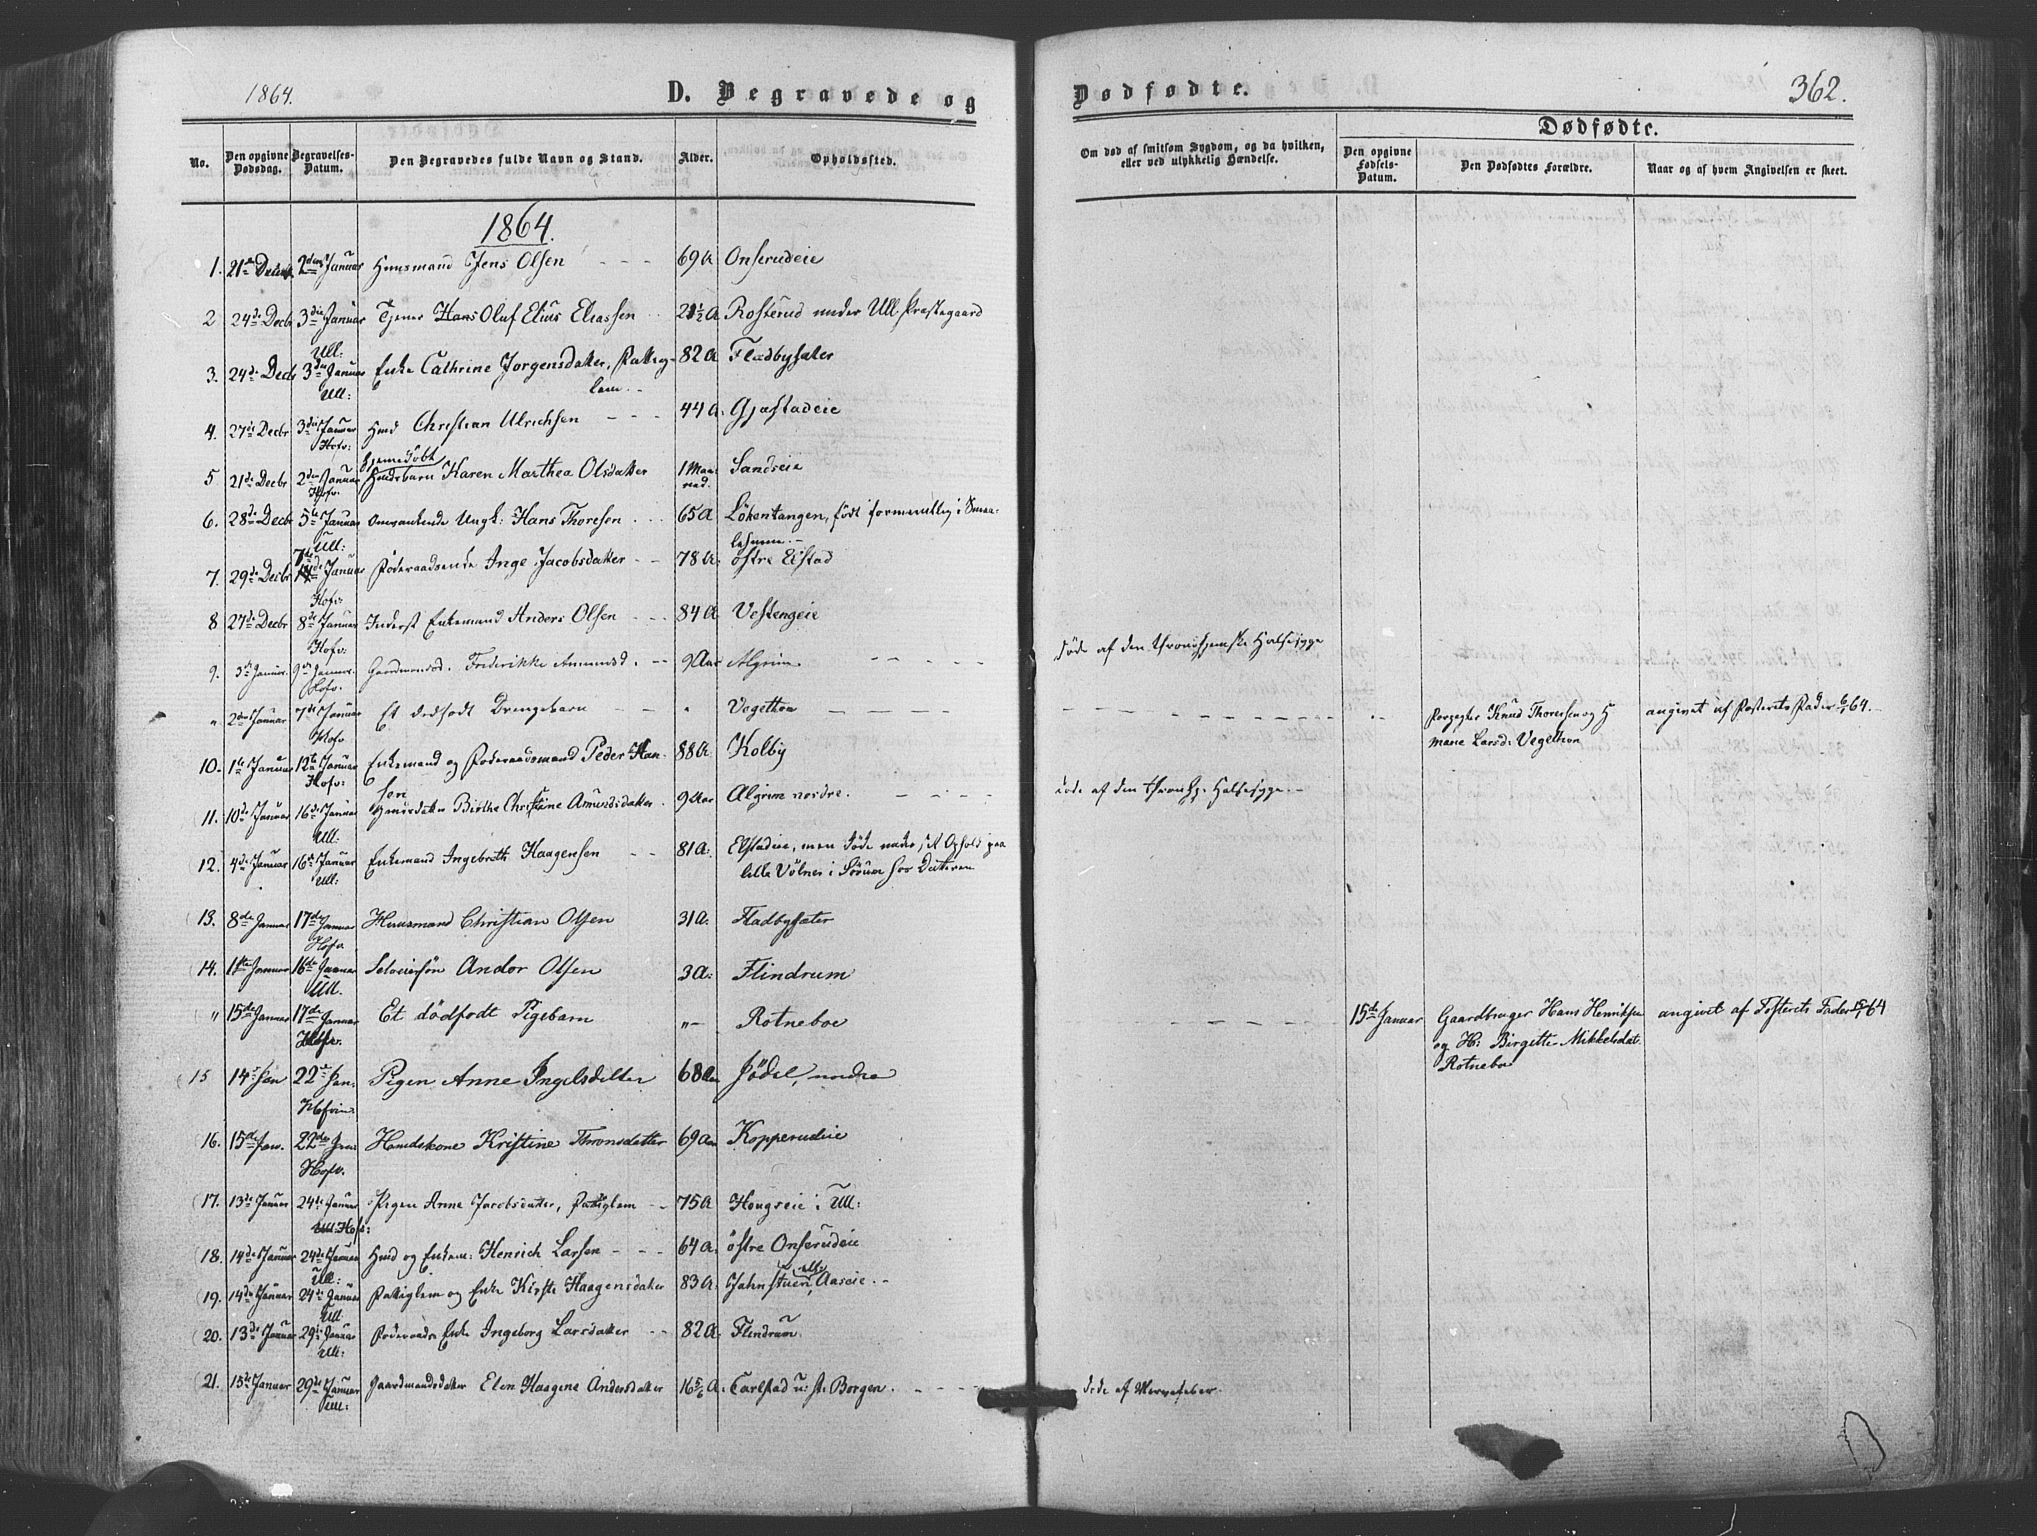 1864.
D. Begravede og
Dødfødte.
362.
No.
Den opgivne Dødsdag.
Begravelses-Datum.
Den Begravedes fulde Navn og Stand.
Alder.
Opholdssted.
Om død af smitsom Sygdom, og da hvilken, eller ved ulykkelig Hændelse.
Dødfødte.
Den opgivne Fødsels-Datum.
Den Dødfødtes Forældre.
Naar og af hvem Angivelsen er skeet.
1864.
1. 21de Decbr 2den Januar Huusmand Jens Olsen 69 A Onserudeie
2 24de Decbr 3die Januar Ull: Tjener Hans Oluf Elius Eliassen 21½ A. Rosterud under Ull. Præstegaard
3. 24de Decbr 3die Januar Ull: Enke Cathrine Jørgensdatter, Fattig-
lem 82 A Fladbysæter
4. 27de Decbr 3die Januar Hofv: Hmd Christian Ulrichsen 44 A. Gjæstadeie
5 21de Decbr 2den Januar Hofv. hjemdøbt Hmdsbarn Karen Marthea Olsdatter 1 Maa-
ned. Sandseie
6. 28de Decbr 5te Januar Ull: Omvankende Ungk: Hans Thoresen 65 A Løkentangen, født formentlig i Smaa-
lehnene.
7. 29de Decbr 7de Januar Hofv. Føderaadsenke Inge Jacobsdatter 78 A. østre Elstad
8 27de Decbr 8de Januar Hofv: Inderst Enkemand Anders Olsen 84 A Vestengeie
9. 3die Januar. 9de Januar. Hofv. Gaardmandsd. Frederikke Amundsd. 9 Aar Algrim døde af den Throndhjemske Halssyge
" 2den Januar 7de Januar Hofv Et dødfødt Drengebarn " Vegethon Forpagter Knud Thoresen og H angivet af Fosterets Fader 6/1 64.
Marie Larsd: Vegethon
10. 1ste Januar 12te Januar Hofv: Enkemand og Føderaadsmand Peder Han-
sen 88 A. Kolby
11. 10de Januar 16de Januar Ull: Christine Amundsdatter. 9 Aar Algrim nordre. døde af den Throndhj. Halssyge.
12. 4de Januar 16de Januar Ull: Enkemand Ingebreth Haagensen 81 A. Elstadeie, men døde under et Ophold paa
lille Vølner i Sørum hos Datteren
13. 8de Januar 17de Januar Hofv. Huusmand Christian Olsen 31 A. Fladbysæter
14. 11te Januar 16de Januar Ull. Selveiersøn Andor Olsen 3 A: Flindrum
" 15de Januar 17de Januar Hofv. Et dødfødt Pigebarn " Rotneboe 15de Januar Gaardbruger Hans Henriksen angivet af Fosterets Fader 15/1 64
og H: Birgitte Mikkelsdat.
Rotneboe
15 14de Jan 22de Jan. Hofvin. Pigen Anne Ingelsdatter 68 Aar Jødal, nedre
16. 15de Jan. 22de Jan. Hofv. Hmdskone Kristine Thronsdatter 69 Aar Kopperudeie
17. 13de Januar 24de Januar Hofv: Pigen Anne Jacobsdatter, Fattiglem 75 A Hougseie i Ull:
18. 14de Januar 24de Januar Ull: Hmd og Enkem: Henrich Larsen 64 A. østre Onserudeie
19. 14de Januar 24de Januar Ull Fattiglem og Enke Kirsti Haagensdatter 83 A. Jahnstuen, Aaseie.
20. 13de Januar 29de Januar Ull: Føderaads Enke Ingeborg Larsdatter 82 A: Flindrum
21. 15de Januar 29de Januar Ull: Gaardmandsdatter Elen Haagene Andersdatter 16 5/6 A. Carlstad u: st: Borgen. døde af Nervefeber.